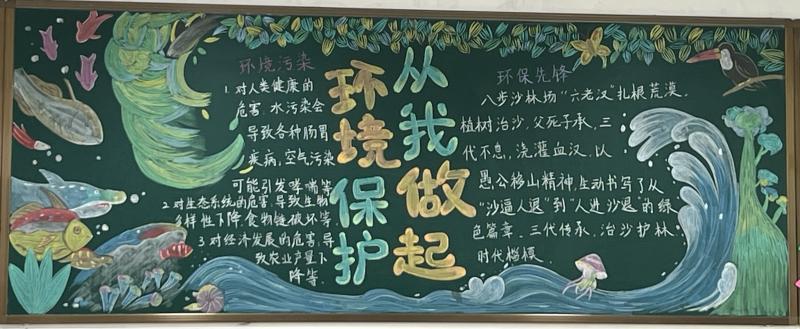 环境污染
1.对人类健康的
危害:水污染会
导致各种肠胃
疾病,空气污染
可能引发哮喘等
2.对生态系统的危害:导致生物
多样性下降,食物链破坏等.
3.对经济发展的危害:导
致农业产量下
降等.
环境保护
从我做起
环保先锋
八步沙林场“六老汉”扎根荒漠,
植树治沙,父死子承,三
代不息,浇灌血汉,以
愚公移山精神,生动书写了从
“沙逼人退”到“人进沙退”的绿
色篇章.三代传承,治沙护林
时代楷模.